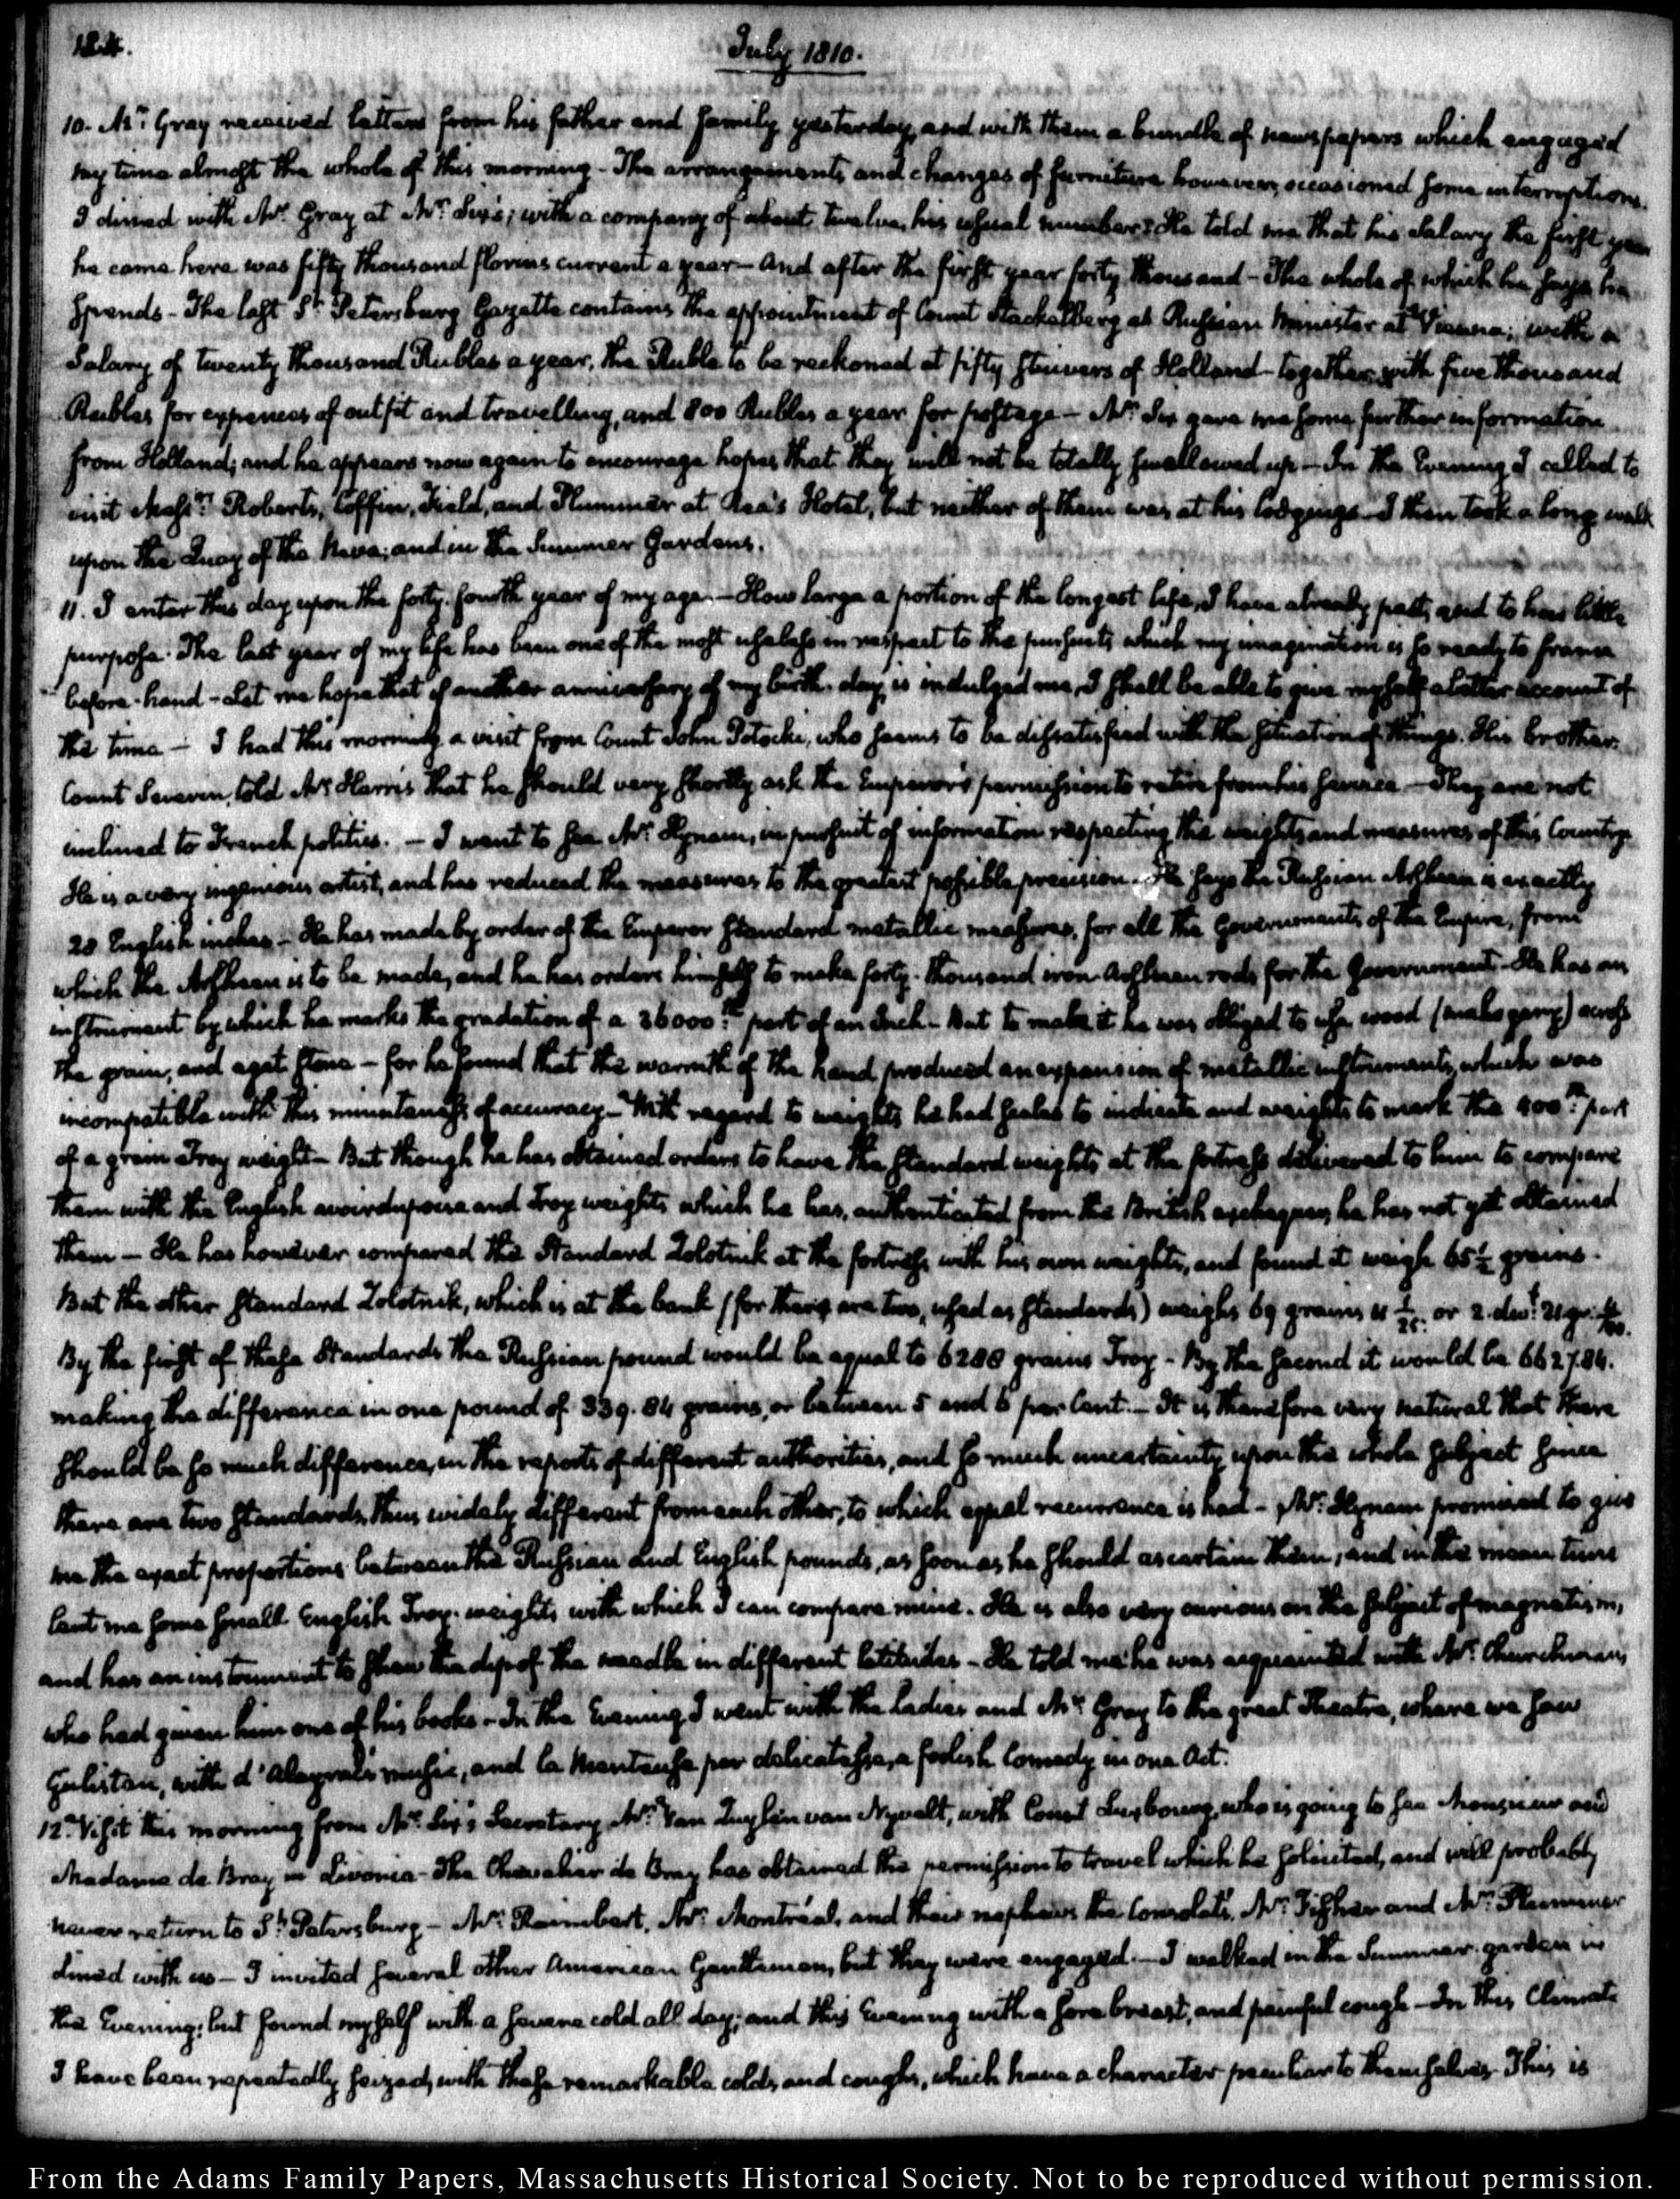 124.
July 1810.
10. Mr. Gray received letters from his father and family yesterday, and with them a bundle of newspapers which engaged
my time almost the whole of this morning - The arrangements and changes of furniture however, occasioned some interruption.
I dined with Mr. Gray at Mr. Six's; with a company of about twelve, his usual number. He told me that his Salary the first year
he came here was fifty thousand florins current a year - And after the first year forty thousand - The whole of which he says he
spends - The last St. Petersburg Gazette contains the appointment of Count Stackelberg as Russian Minister at Vienna; with a
Salary of twenty thousand Rubles a year, the Ruble to be reckoned at fifty stuivers of Holland - together with five thousand
Rubles for expences of outfit and travelling, and 800 Rubles a year for postage - Mr. Six gave me some further information
from Holland; and he appears now again to encourage hopes that they will not be totally swallowed up - In the Evening I called to
visit Messrs. Roberts, Coffin, Field, and Plummer at Rea's Hotel, but neither of them was at his lodgings - I then took a long walk
upon the Quay of the Neva; and in the Summer Gardens.
11. I enter this day upon the forty-fourth year of my age. - How large a portion of the longest life, I have already past, and to how little
purpose. The last year of my life has been one of the most useless in respect to the pursuits which my imagination is so ready to frame
before-hand - Let me hope that if another anniversary of my birth-day is indulged me, I shall be able to give myself a better account of
the time - I had this morning a visit from Count John Potocki, who seems to be dissatisfied with the situation of things. His brother
Count Severin, told Mr. Harris that he should very shortly ask the Emperor's permission to retire from his service - They are not
inclined to French politics. - I went to see Mr. Hynam, in pursuit of information respecting the weights and measures of this Country.
He is a very ingenious artist, and has reduced the measures to the greatest possible precision. He says the Russian Arsheen is exactly
28 English inches - He has made by order of the Emperor standard metallic measures, for all the Governments of the Empire, from
which the Arsheen is to be made, and he has orders himself to make forty-thousand iron Arsheen rods for the Government. He has an
instrument by which he marks the gradation of a 36000th. part of an Inch - But to make it he was obliged to use wood (mahogany) across
the grain, and agat stone - for he found that the warmth of the hand produced an expansion of metallic instruments, which was
incompatible with this minuteness of accuracy - With regard to weights he had scales to indicate and weights to mark the 400th. part
of a grain Troy weight - But though he has obtained orders to have the standard weights at the fortress delivered to him to compare
them with the English avoirdupoise and Troy weights which he has, authenticated from the British exchequer, he has not yet obtained
them - He has however compared the Standard Zolotnik at the fortress with his own weights, and found it weigh 65½ grains.
But the other standard Zolotnik, which is at the bank (for there are two, used as standards) weighs 69 grains or 2 dwt. 21 gr.
By the first of these Standards the Russian pound would be equal to 6288 grains Troy - By the second it would be 6627.84.
making the difference in one pound of 339.84 grains, or between 5 and 6 per Cent. - It is therefore very natural that there
should be so much difference, in the reports of different authorities, and so much uncertainty upon the whole subject since
there are two standards, thus widely different from each other, to which equal recurrence is had - Mr. Hynam promised to give
me the exact proportions between the Russian and English pounds, as soon as he should ascertain them, and in the mean time
lent me some small English Troy-weights with which I can compare mine. He is also very curious on the subject of magnetism,
and has an instrument to shew the dip of the needle in different latitudes - He told me he was acquainted with Mr. Churchman,
who had given him one of his books - In the Evening I went with the Ladies and Mr. Gray to the great Theatre, where we saw
Gulistan, with d'Alayrac's music, and la Menteuse par delicatesse, a foolish Comedy in one Act.
12. Visit this morning from Mr. Six's Secretary Mr. Van Zuylen van Nyvelt, with Count Luxbourg, who is going to see Monsieur and
Madame de Bray in Livonia - The Chevalier de Bray has obtained the permission to travel which he solicited, and will probably
never return to St. Petersburg - Mr. Raimbert, Mr. Montréal, and their nephews the Consolats, Mr. Fisher and Mr. Plummer
dined with us - I invited several other American Gentlemen, but they were engaged. - I walked in the Summer-garden in
the Evening; but found myself with a severe cold all day; and this Evening with a sore breast, and painful cough - In this Climate
I have been repeatedly seized, with these remarkable colds, and coughs, which have a character peculiar to themselves. This is
From the Adams Family Papers, Massachusetts Historical Society. Not to be reproduced without permission.